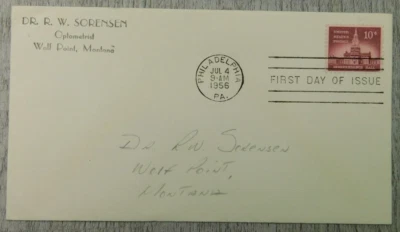 DR. R. W. SORENSEN
Optometrist
Wolf Point, Montana
10¢
PHILADELPHIA
JUL 4
9-AM
1956
PA.
FIRST DAY OF ISSUE
Dr. RW Sorensen
Wolf Point,
Montana